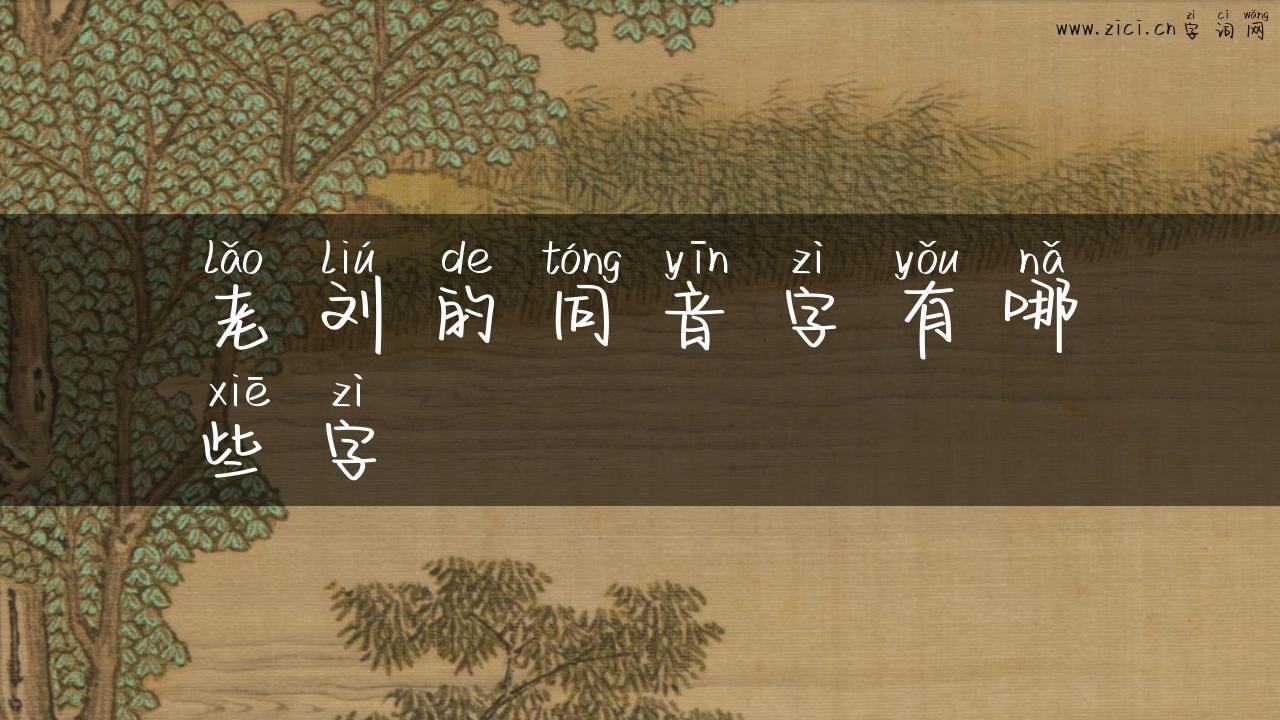 zì cí wǎng
www.zici.cn字词网
lǎo liú de tóng yīn zì yǒu nǎ
老刘的同音字有哪
xiē zì
些字